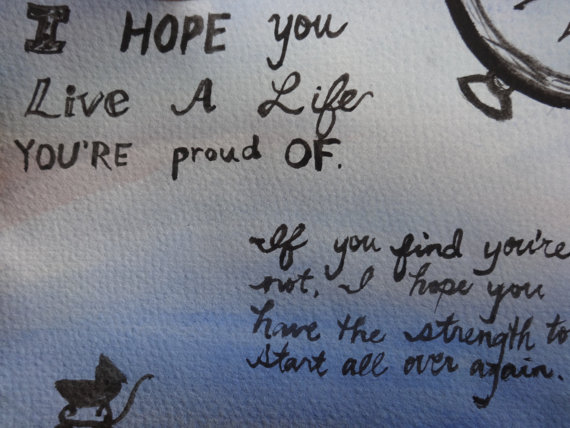 I HOPE you
Live A Life
YOU'RE proud OF.
If you find you're
not, I hope you
have the strength to
start all over again.